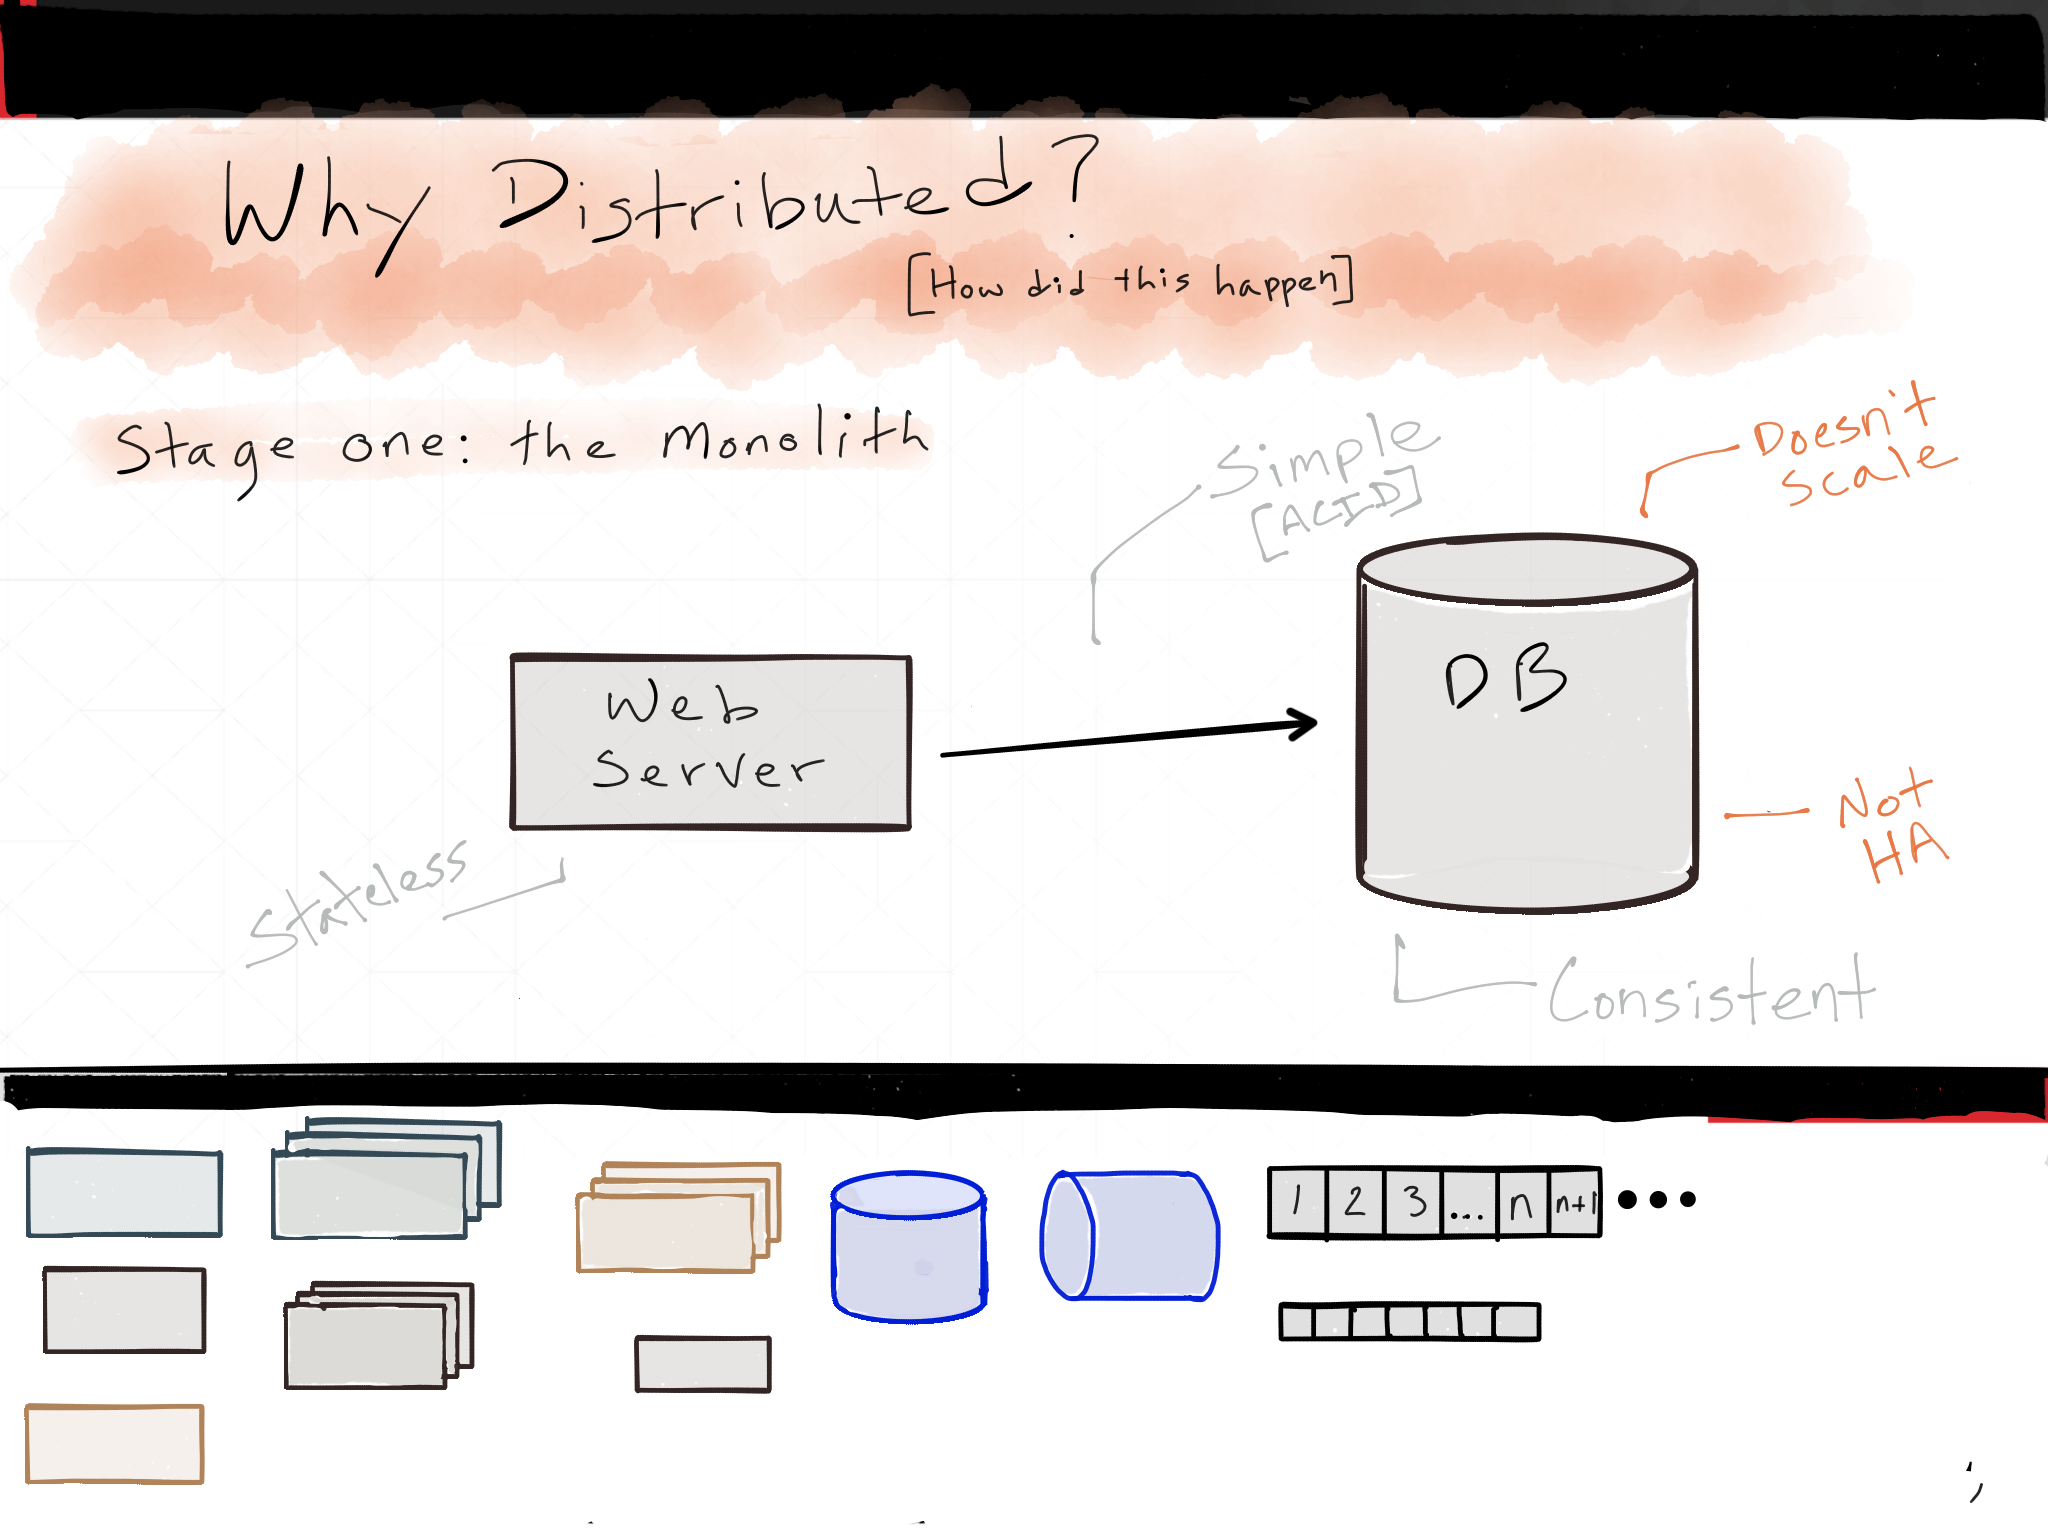 Why Distributed?
[How did this happen]
Stage one: the monolith
Simple
[ACID]
Doesn't
scale
Web
Server
DB
Not
HA
Stateless
Consistent
1 2 3 ... n n+1 •••